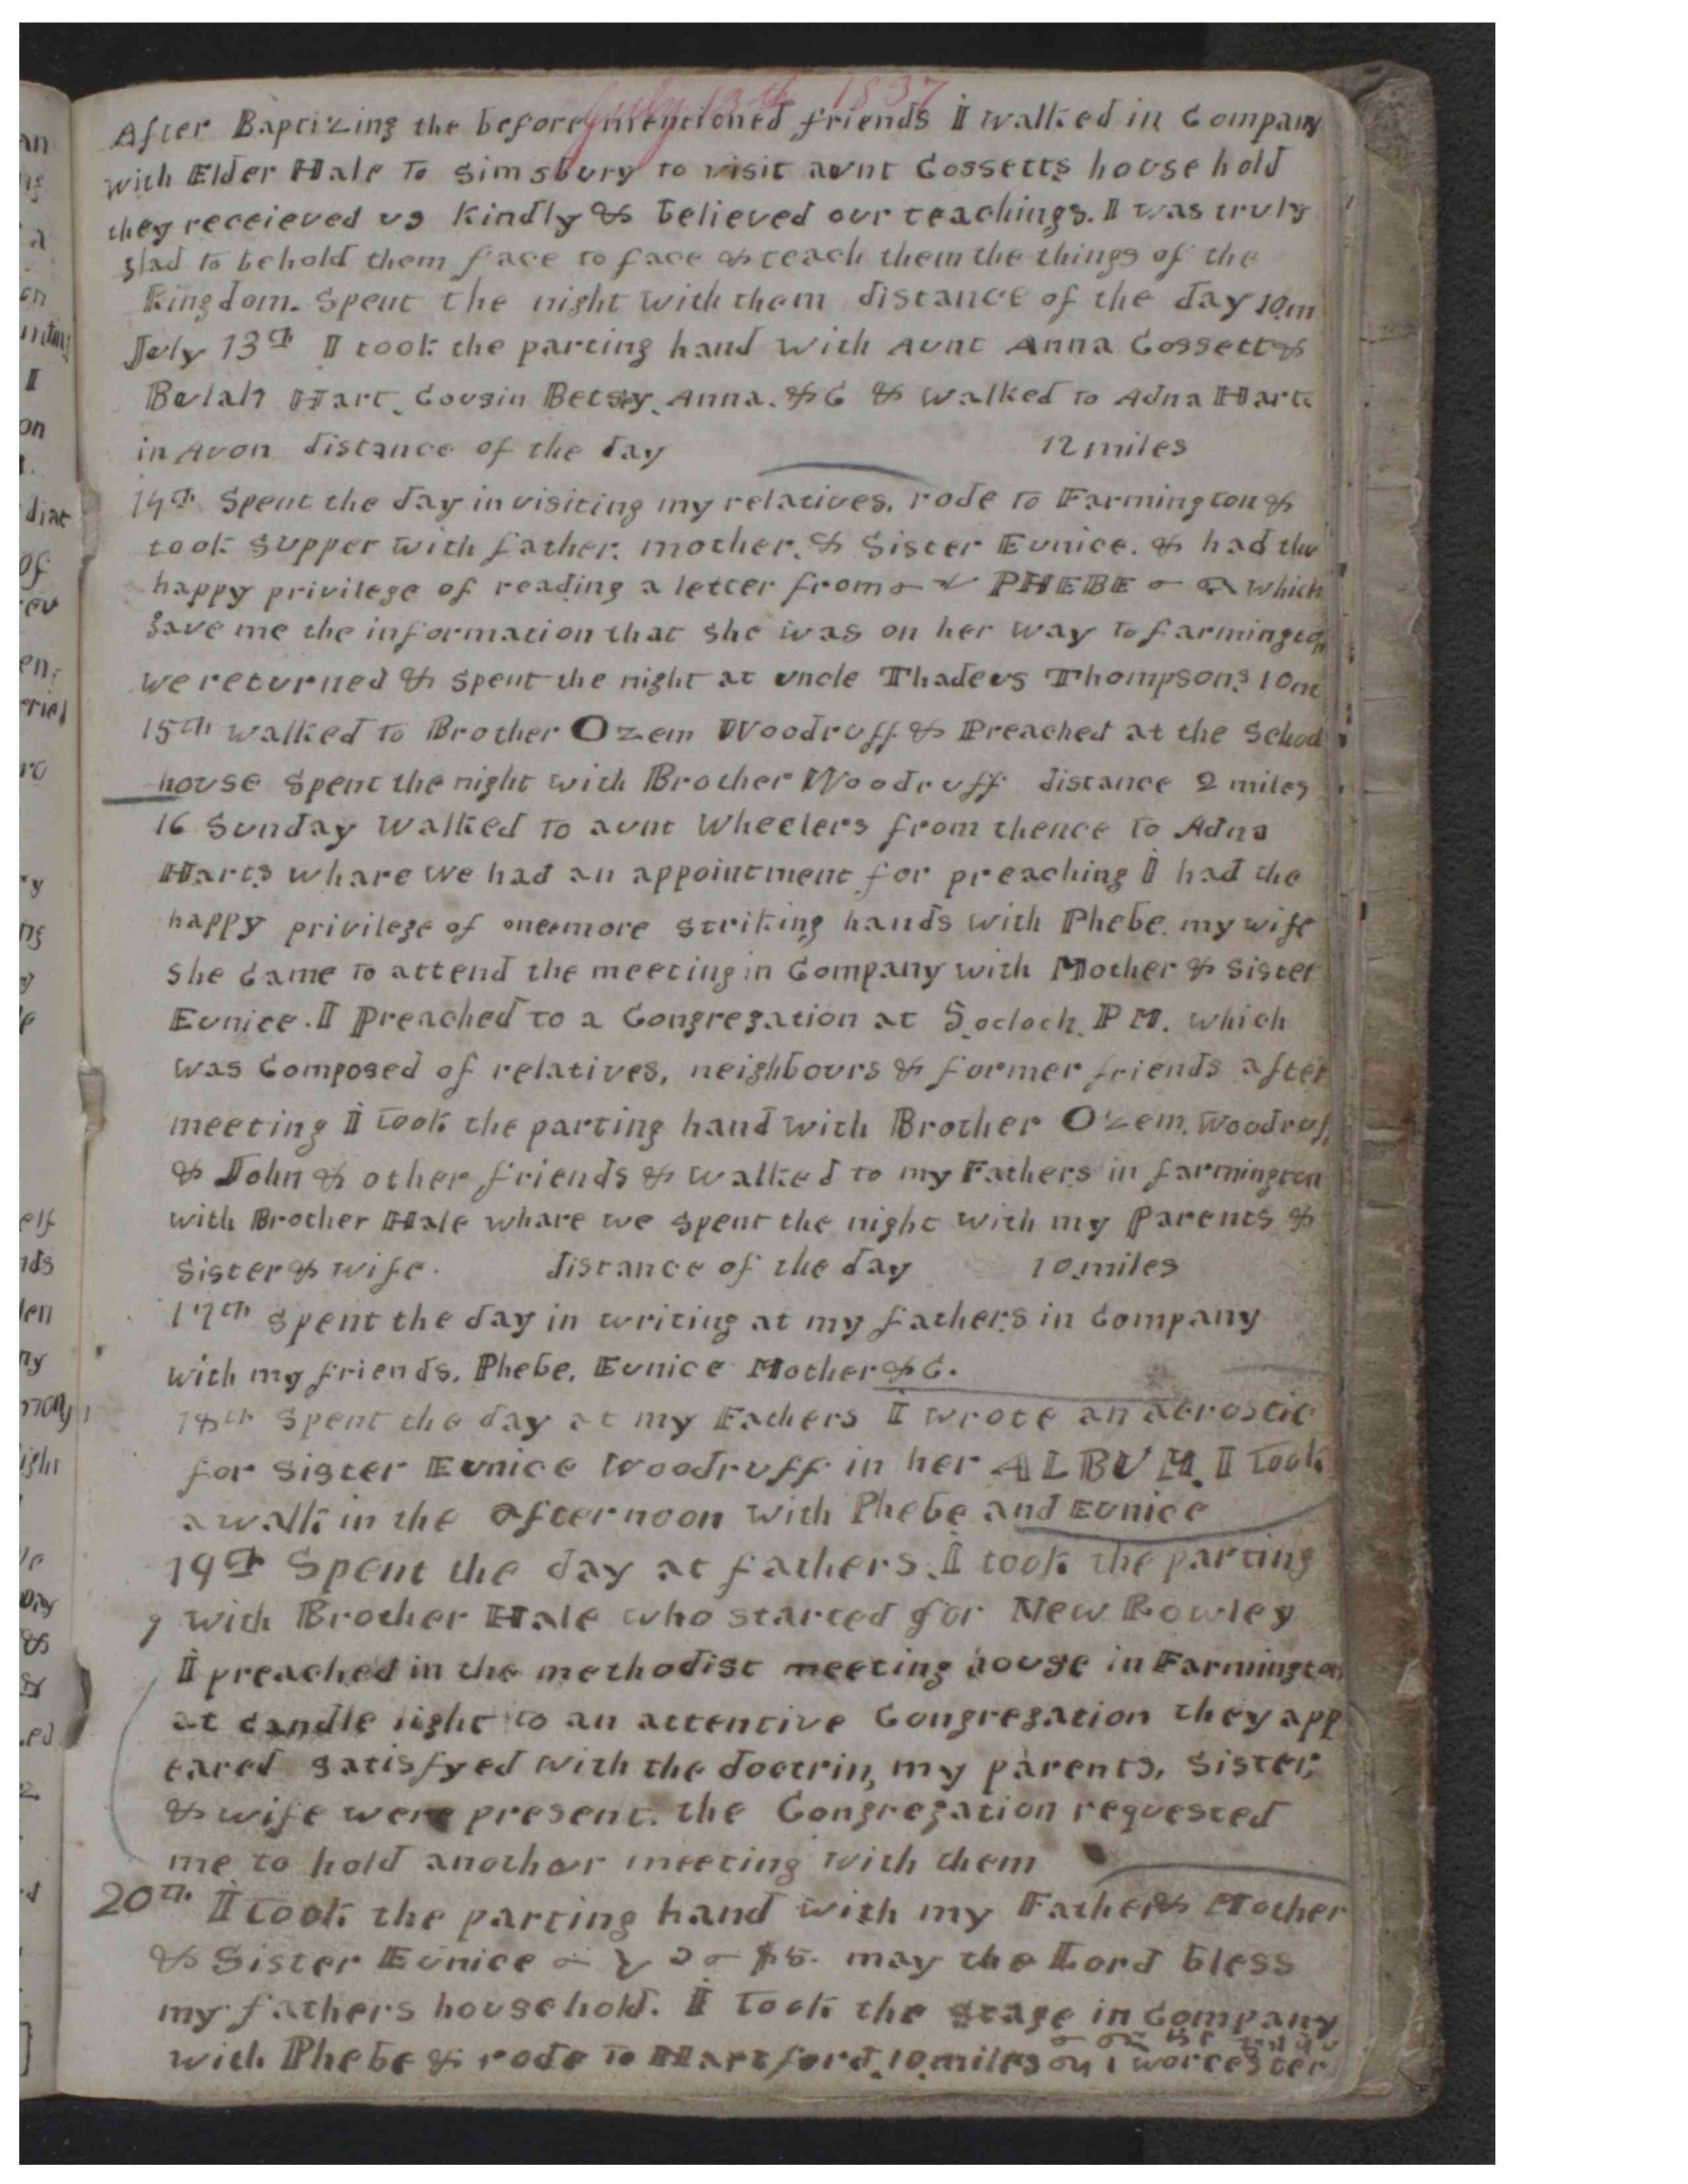 July 13th 1837
After Baptizing the before mentioned friends I walked in Company
with Elder Hale to Simsbury to visit aunt Cossetts house hold
they receieved us kindly & believed our teachings. I was truly
glad to behold them face to face & teach them the things of the
Kingdom. Spent the night with them distance of the day 10m
July 13th I took the parting hand with Aunt Anna Cossett &
Bulah Hart, Cousin Betsy, Anna. &c & walked to Adna Harts
in Avon distance of the day 12 miles
14th Spent the day in visiting my relatives, rode to Farmington &
took supper with father, mother, & Sister Eunice. & had the
happy privilege of reading a letter from PHEBE which
gave me the information that she was on her way to farmington
we returned & spent the night at uncle Thadeus Thompsons 10m
15th walked to Brother Ozem Woodruff & Preached at the School
house Spent the night with Brother Woodruff distance 2 miles
16 Sunday Walked to aunt Wheelers from thence to Adna
Harts whare we had an appointment for preaching I had the
happy privilege of onemore striking hands with Phebe. my wife
She Came to attend the meeting in Company with Mother & Sister
Eunice. I Preached to a Congregation at 5 ocloch PM. which
was Composed of relatives, neighbours & former friends after
meeting I took the parting hand with Brother Ozem. Woodruf,
& John & other friends & walked to my Fathers in farmington
with Brother Hale whare we spent the night with my Parents &
Sister & wife. distance of the day 10 miles
17th Spent the day in writing at my fathers in Company
with my friends, Phebe, Eunice Mother &c.
18th Spent the day at my Fathers I wrote an acrostic
for Sister Eunice Woodruff in her ALBUM. I took
a walk in the afternoon with Phebe and Eunice
19th Spent the day at fathers. I took the parting
with Brother Hale who started for New Rowley
I preached in the methodist meeting house in Farmington
at candle light to an attentive Congregation they app
eared satisfyed with the doctrin, my parents, Sister,
& wife were present. the Congregation requested
me to hold another meeting with them
20th I took the parting hand with my Father & Mother
& Sister Eunice $5. may the Lord bless
my fathers household. I took the stage in Company
with Phebe & rode to Hartford. 10 miles worcester